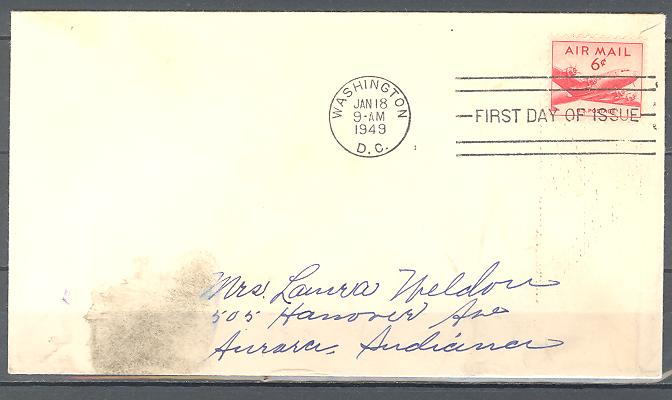 AIR MAIL
6¢
WASHINGTON
JAN 18
9-AM
1949
D.C.
FIRST DAY OF ISSUE
Mrs. Laura Weldon
505 Hanover Ave
Aurora, Indiana